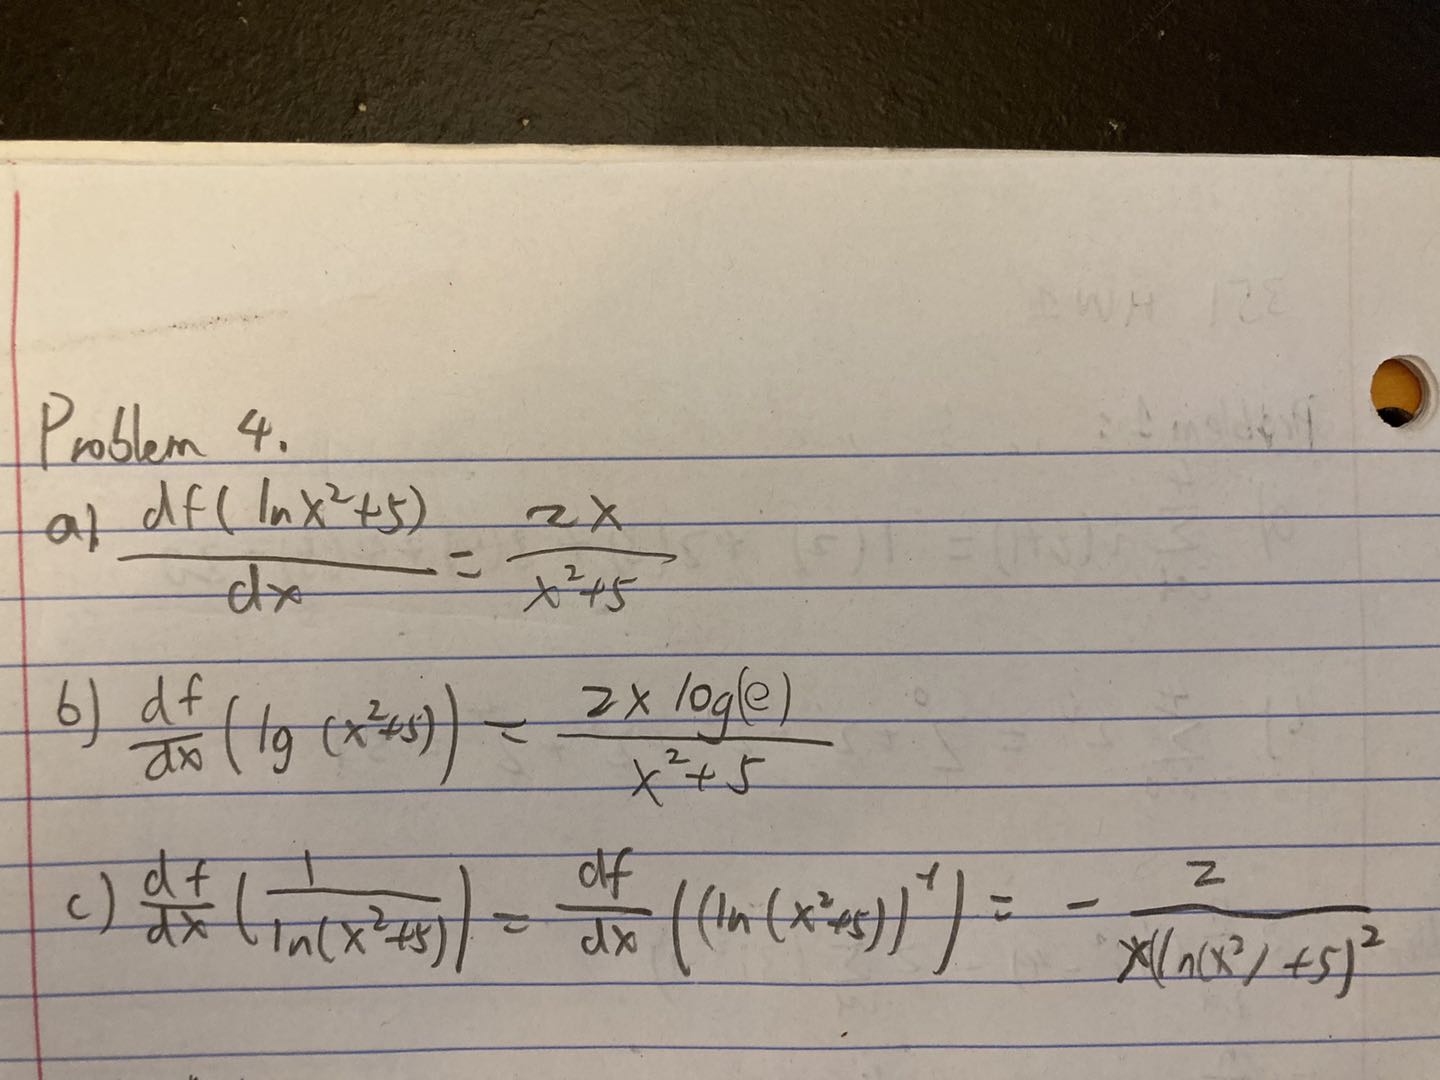 Problem 4.
a) df(lnx²+5)/dx = 2x/x²+5
b) df/dx (lg (x²+5)) = 2x log(e)/x²+5
c) df/dx (1/ln(x²+5)) = df/dx ((ln(x²+5))⁻¹) = - 2/x(ln(x²)+5)²
351 HW1
Problem 1: